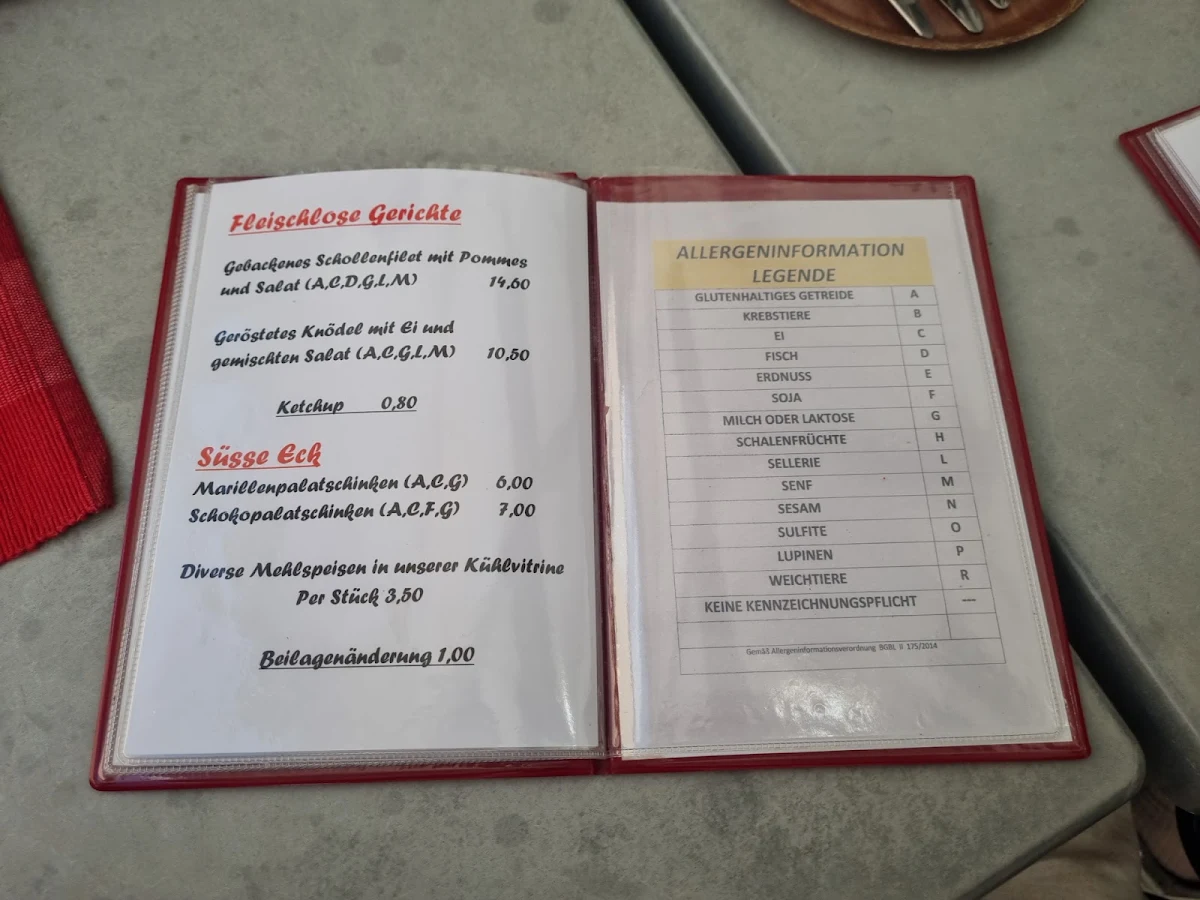 Fleischlose Gerichte
Gebackenes Schollenfilet mit Pommes
und Salat (A,C,D,G,L,M) 14,60
Geröstetes Knödel mit Ei und
gemischten Salat (A,C,G,L,M) 10,50
Ketchup 0,80
Süsse Eck
Marillenpalatschinken (A,C,G) 6,00
Schokopalatschinken (A,C,F,G) 7,00
Diverse Mehlspeisen in unserer Kühlvitrine
Per Stück 3,50
Beilagenänderung 1,00
ALLERGENINFORMATION
LEGENDE
GLUTENHALTIGES GETREIDE A
KREBSTIERE B
EI C
FISCH D
ERDNUSS E
SOJA F
MILCH ODER LAKTOSE G
SCHALENFRÜCHTE H
SELLERIE L
SENF M
SESAM N
SULFITE O
LUPINEN P
WEICHTIERE R
KEINE KENNZEICHNUNGSPFLICHT ---
Gemäß Allergeninformationsverordnung BGBL II 175/2014